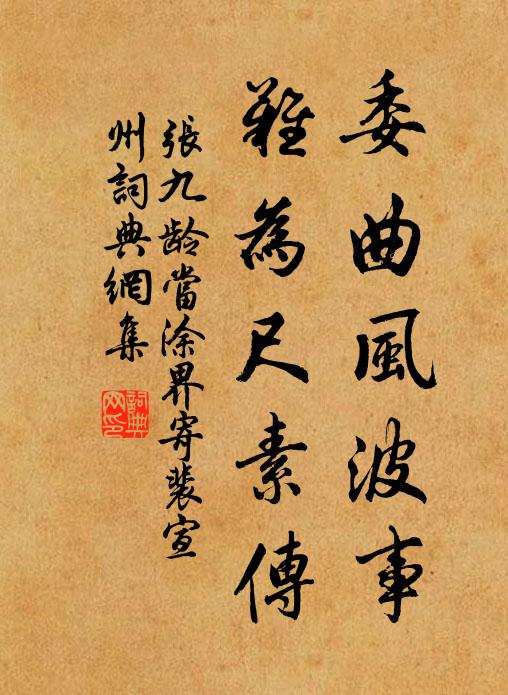 委曲風波事
難為尺素傳
張九龄當涂界寄裴宣
州詞典網集
詞典网印